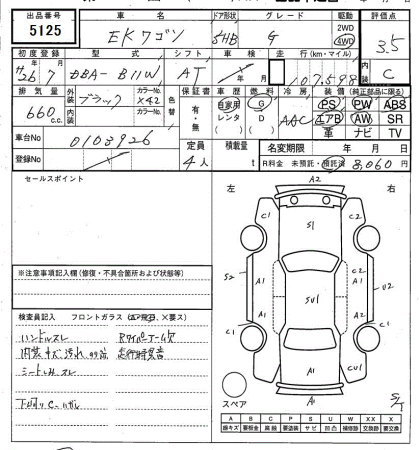 出品番号 車名 ドア形状 グレード 駆動 評価点
5125 EKワゴン 5HB G 2WD 4WD 3.5
初度登録 型式 シフト 車検 走行(km・マイル) 内装
26 7 DBA-B11W AT 年 月 107,599 C
排気量 外装 カラーNo. 色替 保証書 車歴 燃料 冷房 装備(純正部品に限る)
660 c.c. ブラック X42 有・無 自家用 レンタ G D AAC PS PW ABS
内装 カラーNo. エアB AW SR
革 ナビ TV
車台No 0103926
定員 積載量 名変期限 年 月 日
登録No 4人 t R料金 未預託・預託済 8,060円
セールスポイント
左 右
A2
C1 S1 C2
C1 C1
S2 A1 A1 C2 A1 U2
SU1
A1 A1
C1 C1
A1 CU1
スペア A1 S/T
※注意事項記入欄(修復・不具合箇所および状態等)
検査員記入 フロントガラス(△要飛石、×要ス)
ハンドルスレ Rワイパーアーム欠
内装キズ汚れ 走行時異音
シートしみ、スレ
A B C P S U W X XX